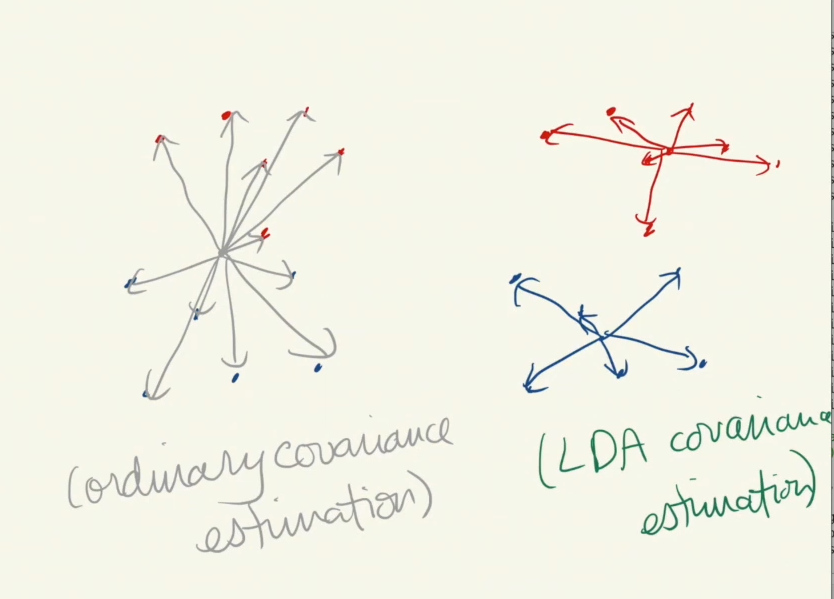 (ordinary covariance
estimation)
(LDA covariance
estimation)